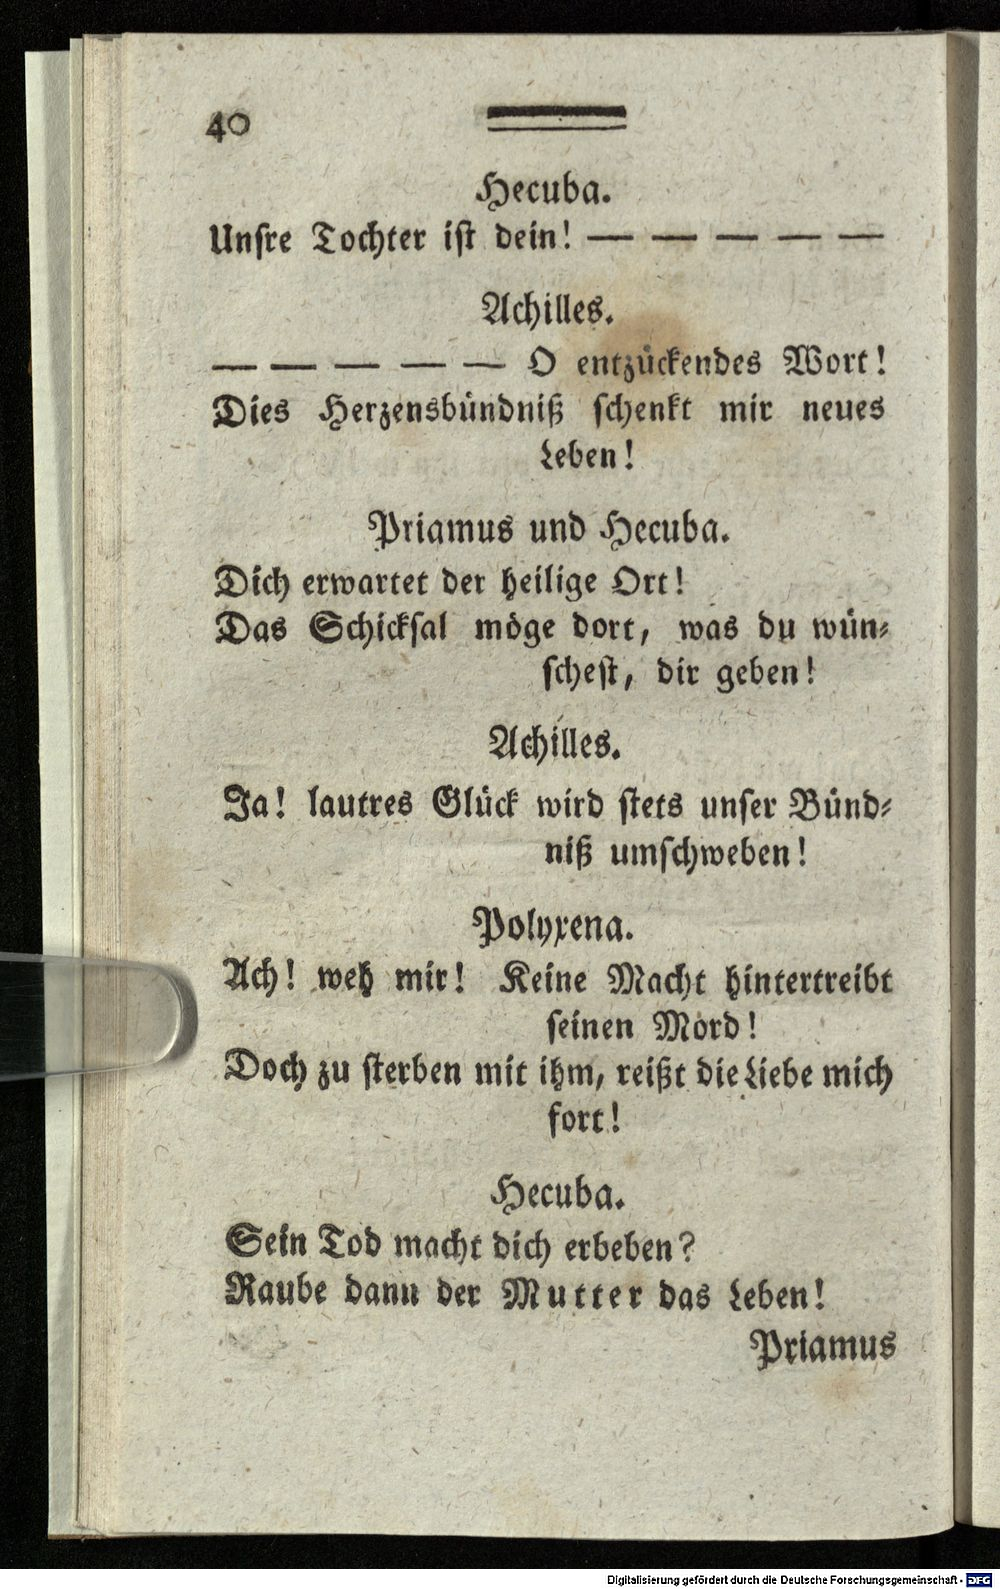 40
Hecuba.
Unsre Tochter ist dein! — — — — —
Achilles.
— — — — — O entzückendes Wort!
Dies Herzensbündniß schenkt mir neues
Leben!
Priamus und Hecuba.
Dich erwartet der heilige Ort!
Das Schicksal möge dort, was du wün-
schest, dir geben!
Achilles.
Ja! lautres Glück wird stets unser Bünd-
niß umschweben!
Polyxena.
Ach! weh mir! Keine Macht hintertreibt
seinen Mord!
Doch zu sterben mit ihm, reißt die Liebe mich
fort!
Hecuba.
Sein Tod macht dich erbeben?
Raube dann der Mutter das Leben!
Priamus
Digitalisierung gefördert durch die Deutsche Forschungsgemeinschaft - DFG